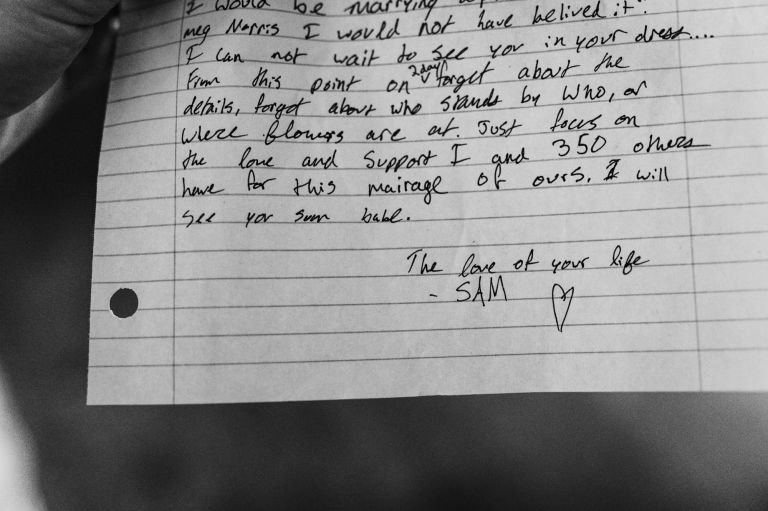 I would be marrying
meg Morris I would not have belived it!
I can not wait to see you in your dress....
From this point on today forget about the
details, forget about who stands by who, or
where flowers are at. Just focus on
the love and support I and 350 others
have for this mairage of ours. I will
see you soon babe.
The love of your life
- SAM ♡